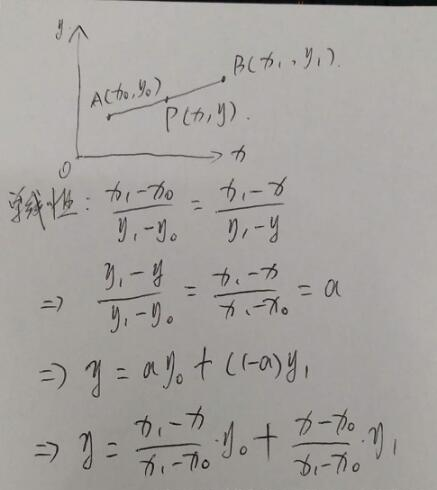 y
B(x₁, y₁).
A(x₀, y₀)
P(x, y).
O
x
单线性: (x₁-x₀)/(y₁-y₀) = (x₁-x)/(y₁-y)
⇒ (y₁-y)/(y₁-y₀) = (x₁-x)/(x₁-x₀) = a
⇒ y = ay₀ + (1-a)y₁
⇒ y = (x₁-x)/(x₁-x₀)·y₀ + (x-x₀)/(x₁-x₀)·y₁